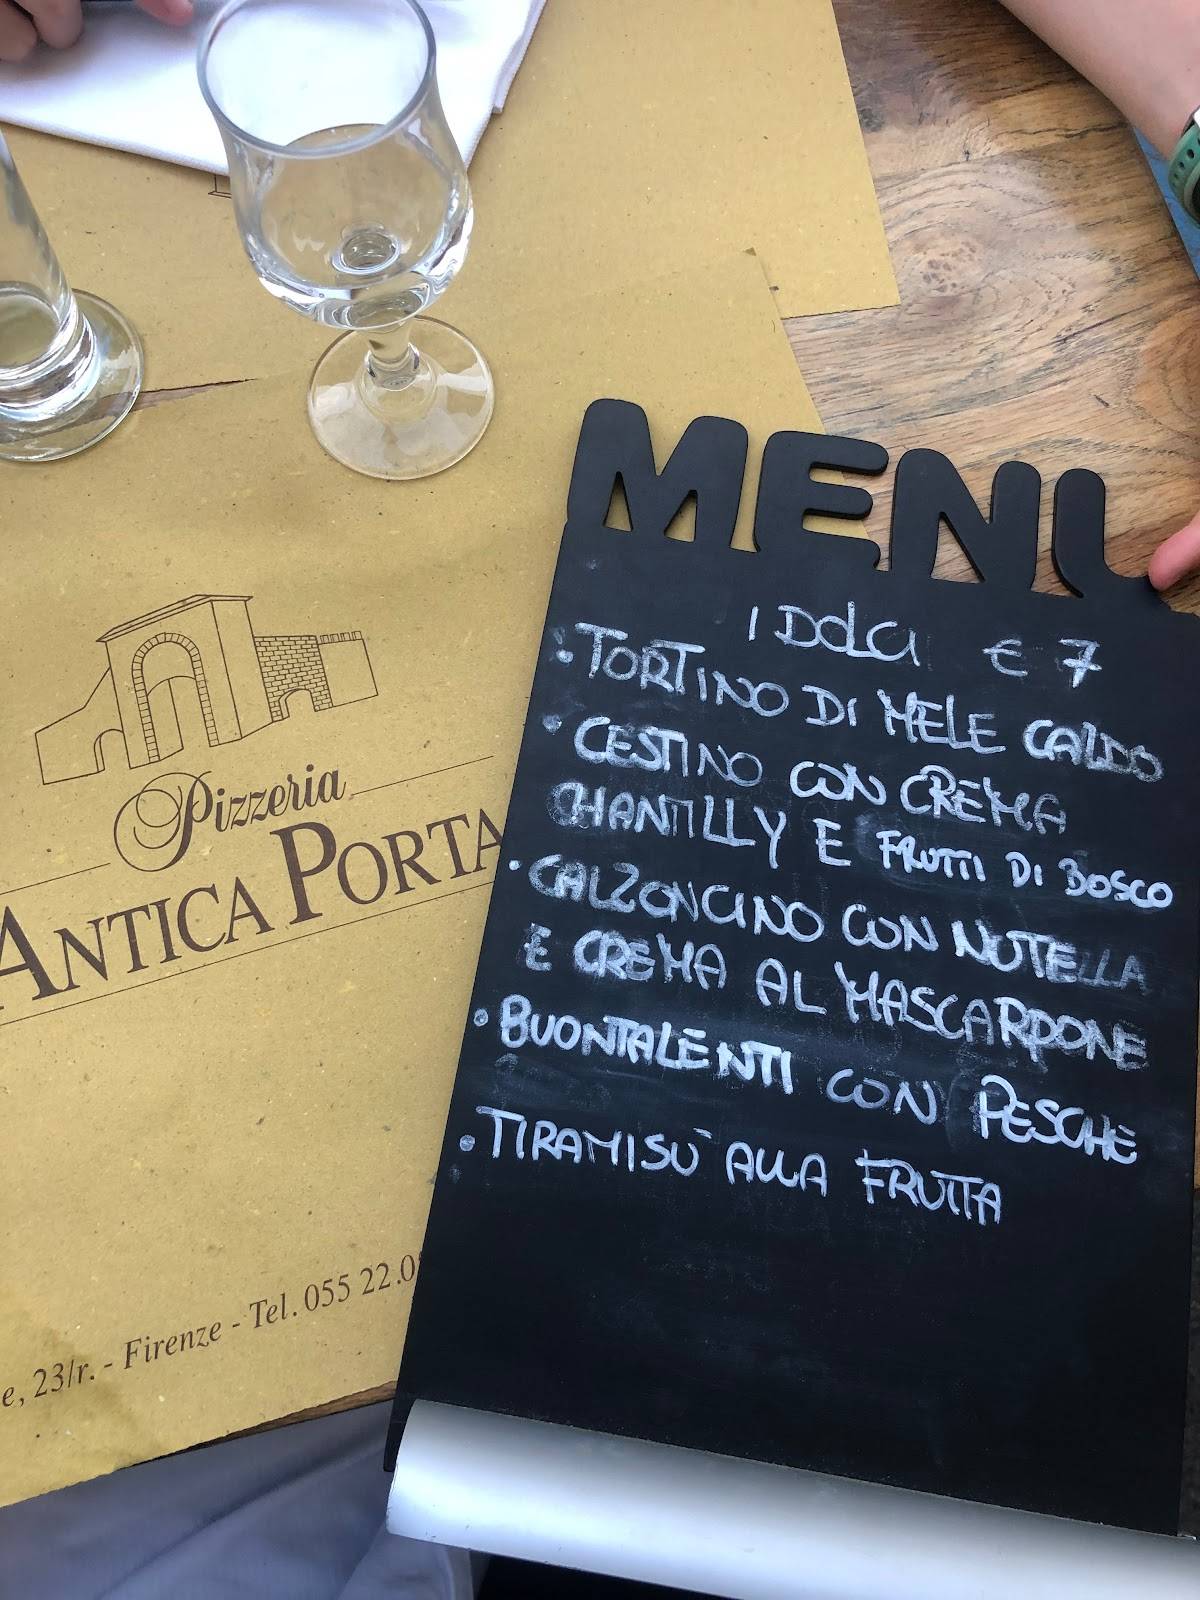 MENU
I DOLCI € 7
• TORTINO DI MELE CALDO
• CESTINO CON CREMA
CHANTILLY E FRUTTI DI BOSCO
• CALZONCINO CON NUTELLA
E CREMA AL MASCARPONE
• BUONTALENTI CON PESCHE
• TIRAMISÙ ALLA FRUTTA
Pizzeria
ANTICA PORTA
e, 23/r. - Firenze - Tel. 055 22.0